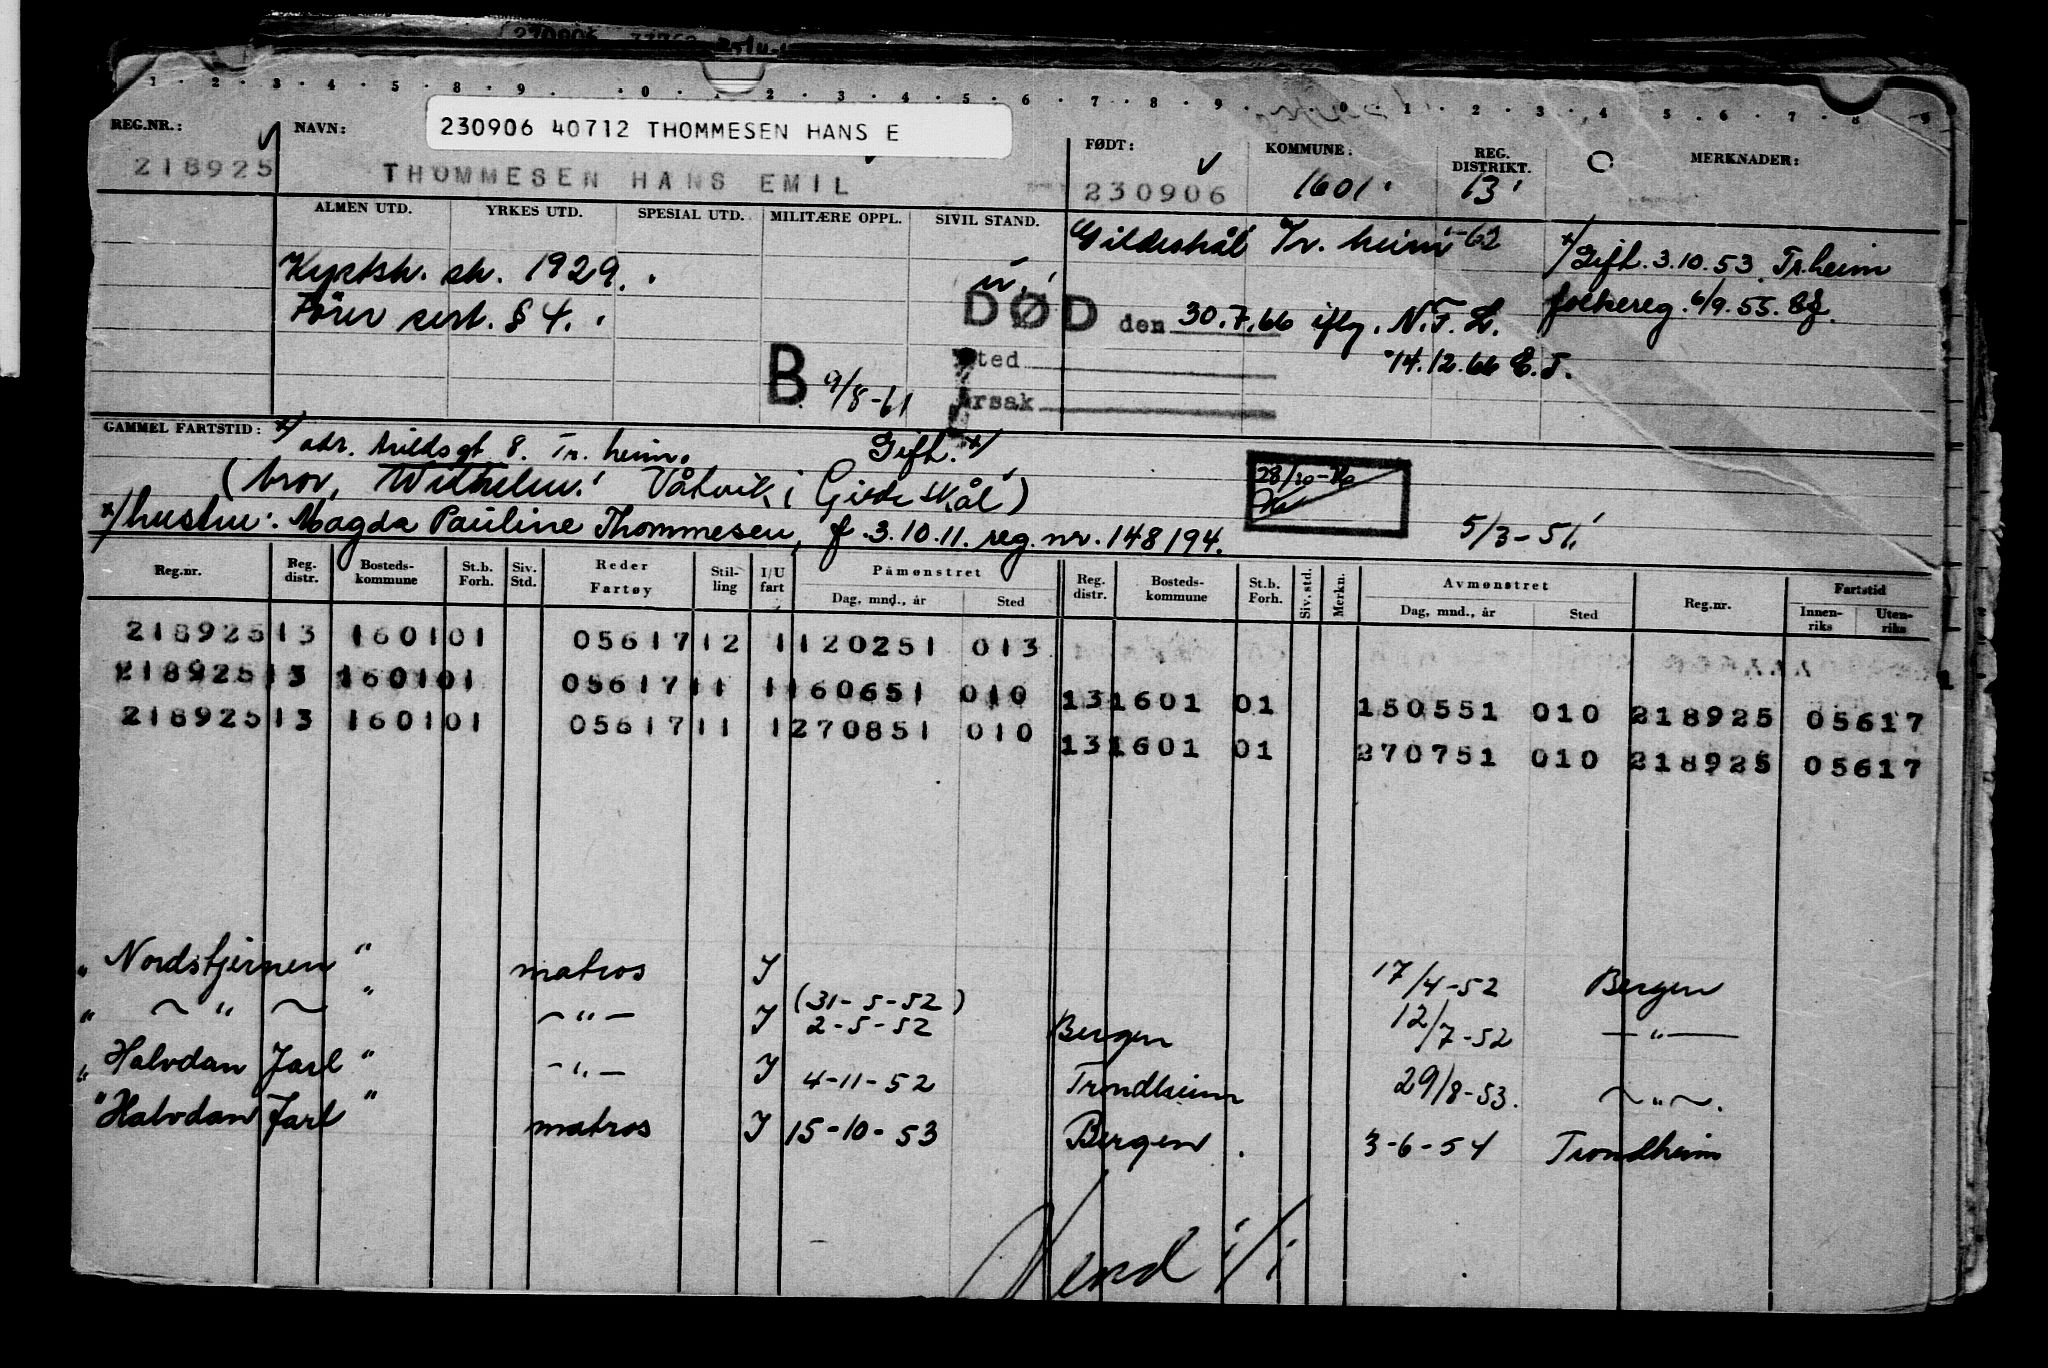 230906 40712 THOMMESEN HANS E
REG.NR.: NAVN: FØDT: KOMMUNE: REG. DISTRIKT. MERKNADER:
218925 THOMMESEN HANS EMIL 230906 1601 13
ALMEN UTD. YRKES UTD. SPESIAL UTD. MILITÆRE OPPL. SIVIL STAND.
Gildeskål Tr.heim -62 x/ Gift. 3.10.53 Tr.heim
Kystsk. sk. 1929. u.
folkereg. 6/9.55.
Fører sert. § 4. DØD den 30.7.66 iflg. N.T.L.
sted 14.12.66 E.T.
B 9/8-61 årsak
GAMMEL FARTSTID: x/ adr. Arildsgt 8. Tr. heim. Gift. x/
(bror, Wilhelm. Våtvik i Gildeskål) 28/10
x/ hustru: Magda Pauline Thommesen, f. 3.10.11. reg. nr. 148194. 5/3-51
Reg.nr. Reg. distr. Bosteds-kommune St.b. Forh. Siv. Std. Reder Fartøy Stil-ling I/U fart Påmønstret Dag, mnd., år Sted Reg. distr. Bosteds-kommune St.b. Forh. Siv. std. Merkn. Avmønstret Dag, mnd., år Sted Reg.nr. Fartstid Innen-riks Uten-riks
218925 13 1601 01 05617 12 1 120251 013
218925 13 1601 01 05617 11 1 160651 010 13 1601 01 150551 010 218925 05617
218925 13 1601 01 05617 11 1 270851 010 13 1601 01 270751 010 218925 05617
" Nordstjernen " matros I 17/4-52 Bergen
" ~ " ~ " - " - I (31-5-52) 2-5-52 Bergen 12/7-52 - " -
" Halvdan Jarl " - " - I 4-11-52 Trondheim 29/8-53. ~ " ~.
" Halvdan Jarl " matros I 15-10-53 Bergen. 3-6-54 Trondheim
Vend